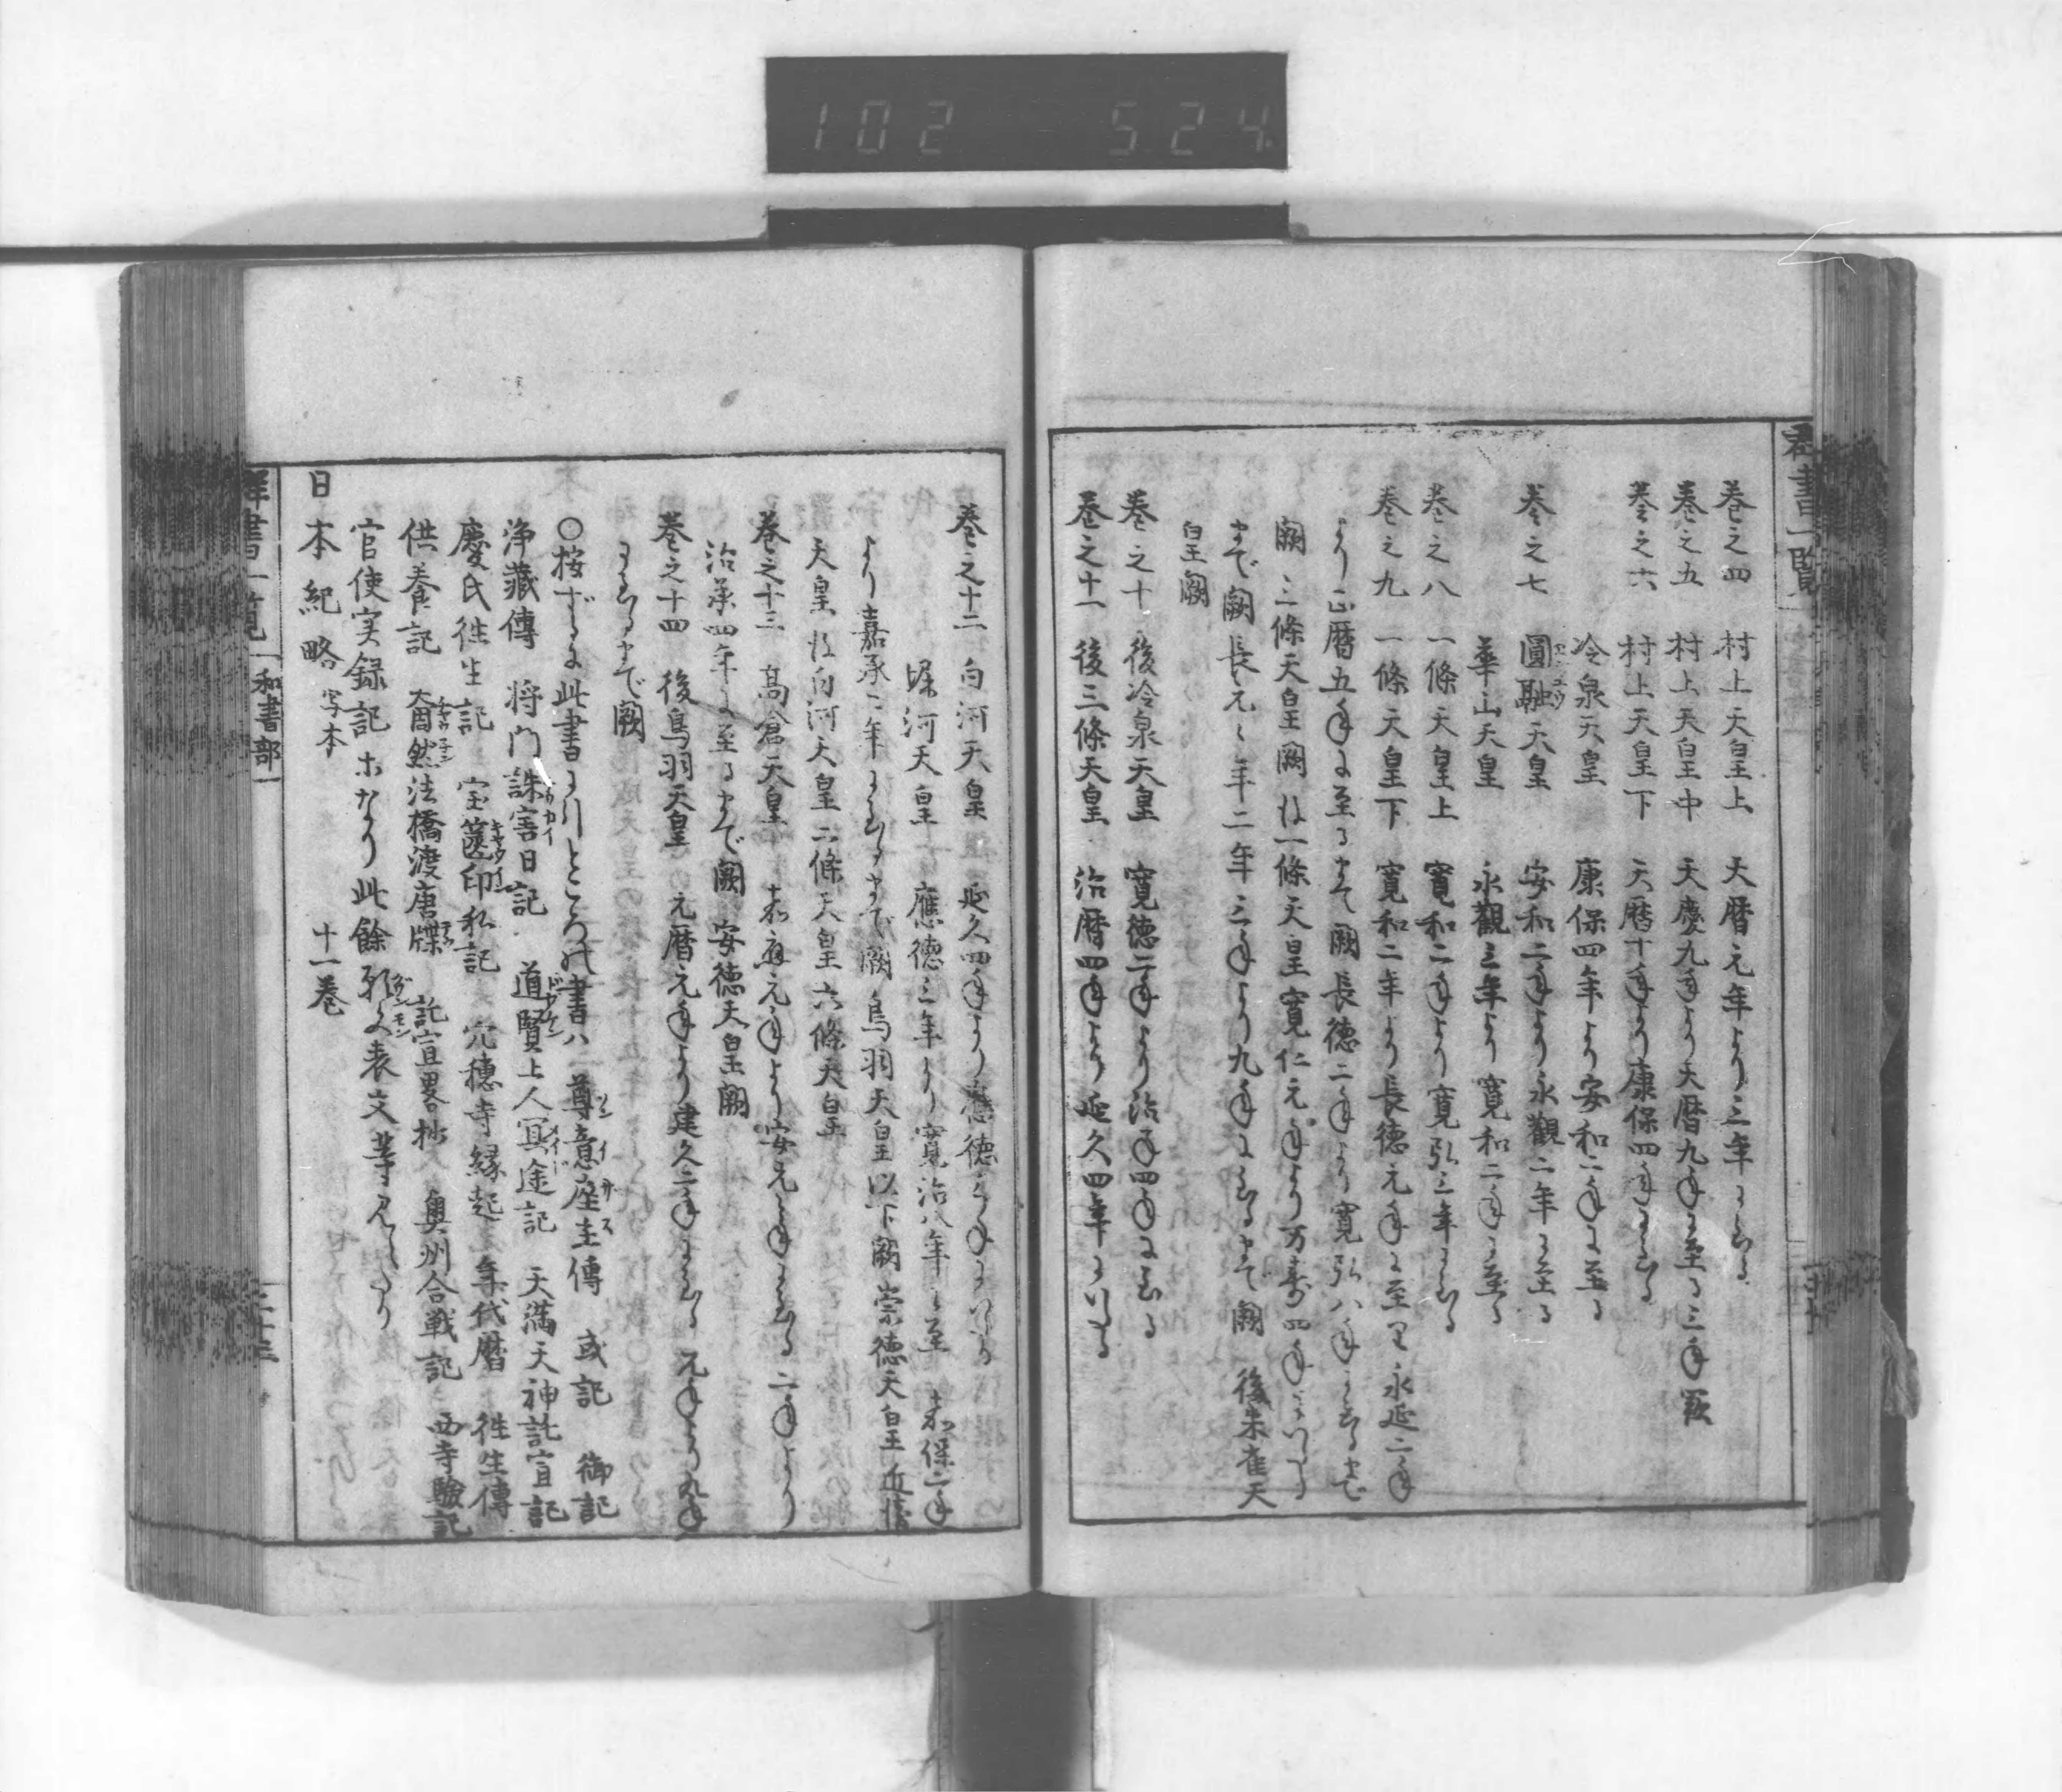 102 524
群書一覧
巻之四 村上天皇上 天暦元年より三年にいたる
巻之五 村上天皇中 天慶九年より天暦九年に至る三年闕
巻之六 村上天皇下 天暦十年より康保四年にいたる
冷泉天皇 康保四年より安和二年に至る
巻之七 圓融天皇 安和二年より永觀二年に至る
華山天皇 永觀三年より寛和二年に至る
巻之八 一條天皇上 寛和二年より寛弘三年にいたる
巻之九 一條天皇下 寛和二年より長徳元年に至里永延二年
より正暦五年に至るまて闕長徳二年より寛弘八年にいたるまで
闕 三條天皇闕 後一條天皇寛仁元年より万寿四年にいたる
まで闕長元々年二年三年より九年にいたるまで闕 後朱雀天
皇闕
巻之十 後冷泉天皇 寛徳二年より治平四年にいたる
巻之十一 後三條天皇 治暦四年より延久四年にいたる
巻之十二 白河天皇 延久四年より應徳三年にいたる
堀河天皇 應徳三年より寛治八年に至 嘉保二年
より嘉承二年にいたるまで闕 鳥羽天皇以下闕崇徳天皇近衛
天皇後白河天皇二條天皇六條天皇
巻之十三 高倉天皇 嘉應元年より安元々年にいたる二年より
治承四年に至るまで闕 安徳天皇闕
巻之十四 後鳥羽天皇 元暦元年より建久二年にいたる元年より九年
にいたるまで闕
○按ずるに此書に引ところの書ハ 尊意座主傳 或記 御記
浄藏傳 将門誅害日記 道賢上人冥途記 天満天神託宣記
慶氏徃生記 宝篋印私記 穴穂寺縁起 年代暦 徃生傳
供養記 奝然法橋渡唐牒 託宣畧抄 奥州合戦記 西寺驗記
官使実録記ホなり此餘 表文等見えたり
日本紀略 写本 十一巻
群書一覧 和書部一 三十三